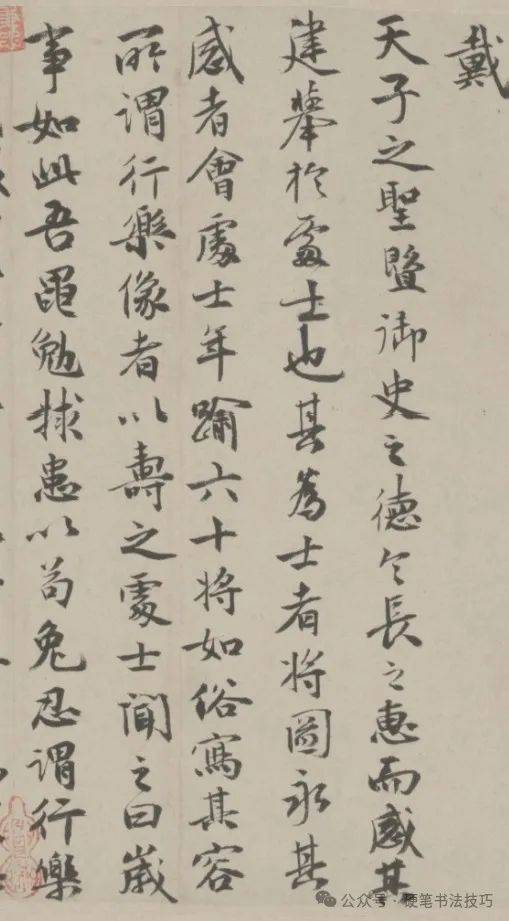 戴
天子之聖暨御史之德令長之惠而感其
建舉於處士也其為士者將圖永其
感者會處士年踰六十將如俗寫其容
所謂行樂像者以壽之處士聞之曰歲
事如此吾黽勉捄患以苟免忍謂行樂
公众号·硬笔书法技巧